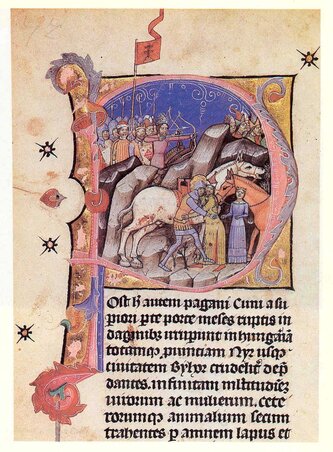 Post h̄ autem pagani Cuni a su
piori pte porte meses ruptis in
daginibꝫ irrupunt in hungariā
totamqꝫ puintiam Nyr usqꝫ
ciuitatem Byhor crudelit dep̄
dantes, infinitam mltitudinez
uirorum ac mulierum, cete
rorumqꝫ animalium secum
trahentes p amnem lapus et